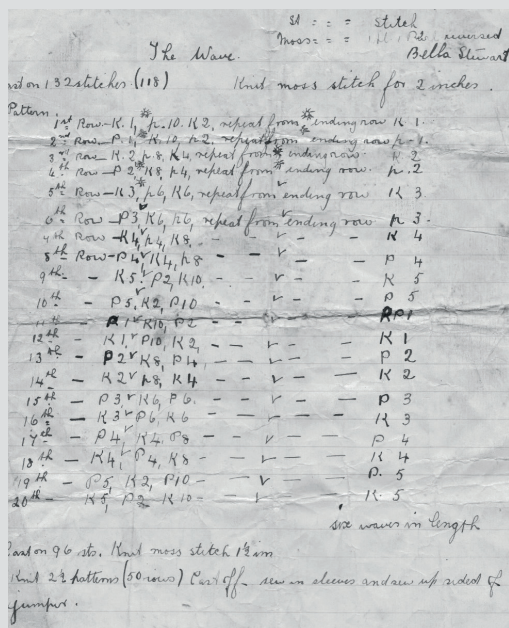 St = = = stitch
Moss = = = P2 reversed
The Wave. Bella Stewart
ast on 132 stitches (118) Knit moss stitch for 2 inches.
Pattern
1st Row - K.1, * p.10. K2, repeat from * ending row K 1.
2nd Row - P.1, * K.10, p2, repeat from * ending row p.1.
3rd row - K.2, * p.8, K4, repeat from * ending row K 2
4th Row - P 2 * K8, p4, repeat from * ending row. p.2
5th Row - K3, * p6, K6, repeat from ending row K 3.
6th Row - P3, ✓ K6, p6, repeat from ✓ ending row p 3.
7th Row - K4, ✓ p4, K8 - - ✓ - - K 4
8th Row - P4 ✓ K4, p8 - - ✓ - - P 4
9th - K5 ✓ P2, K10. - - ✓ - - K 5
10th - P5, ✓ K2, P10 - - ✓ - - P 5
11th - P1 ✓ K10, P2 - - ✓ - - P1
12th - K1 ✓ P10, K2, - - ✓ - - K 1
13th - P2 ✓ K8, P4, - - ✓ - - P 2
14th - K2 ✓ p8, K4 - - ✓ - - K 2
15th - P3 ✓ K6, P6. - - ✓ - - P 3
16th - K3 ✓ P6, K6 - - ✓ - - K 3
17th - P4, ✓ K4, P8 - - ✓ - - P 4
18th - K4, ✓ P4, K8 - - ✓ - - K 4
19th - P5, K2, P10 - - ✓ - - P. 5
20th - K5, P2 K10 - - ✓ - - K. 5
six waves in length
Cast on 96 sts. Knit moss stitch 1½ ins
Knit 2½ patterns (50 rows) Cast off - sew in sleeves and sew up sides of
jumper.